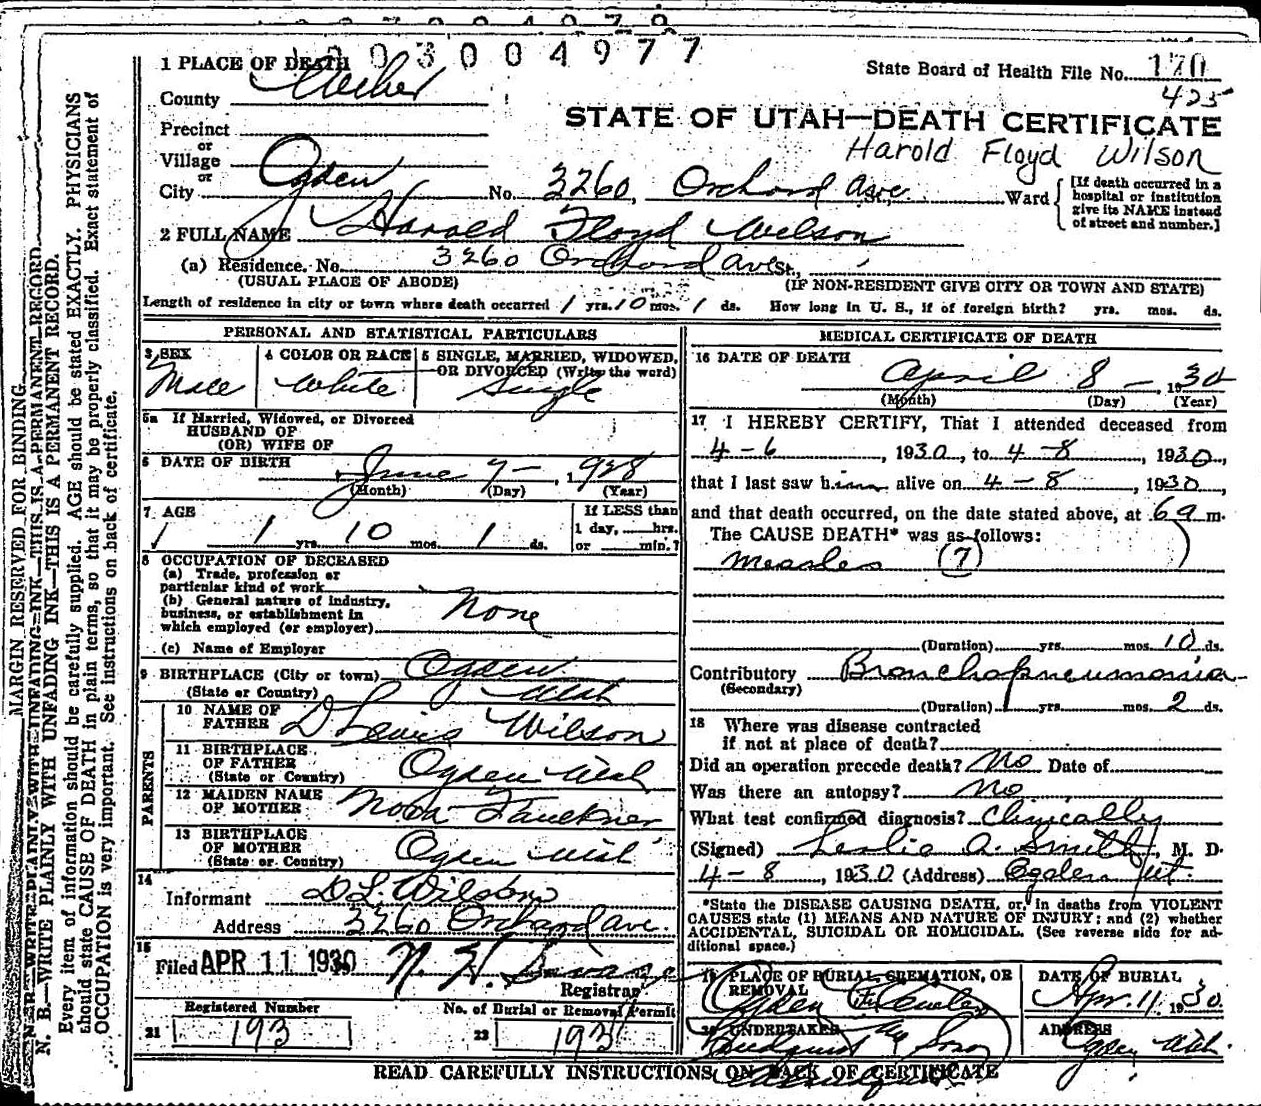 003004977
1 PLACE OF DEATH
State Board of Health File No. 170
425
County Weber
STATE OF UTAH—DEATH CERTIFICATE
Harold Floyd Wilson
Precinct
or
Village
or
City Ogden No. 3260, Orchard Ave. St., Ward
[If death occurred in a hospital or institution give its NAME instead of street and number.]
2 FULL NAME Harold Floyd Wilson
(a) Residence. No. 3260 Orchard Ave St.,
(USUAL PLACE OF ABODE) (IF NON-RESIDENT GIVE CITY OR TOWN AND STATE)
Length of residence in city or town where death occurred 1 yrs. 10 mos. 1 ds. How long in U. S., if of foreign birth? yrs. mos. ds.
PERSONAL AND STATISTICAL PARTICULARS
3 SEX
Male
4 COLOR OR RACE
White
5 SINGLE, MARRIED, WIDOWED, OR DIVORCED (Write the word)
Single
5a If Married, Widowed, or Divorced
HUSBAND OF
(OR) WIFE OF
6 DATE OF BIRTH June 7 - 1928
(Month) (Day) (Year)
7 AGE
1 yrs. 10 mos. 1 ds.
If LESS than
1 day, hrs.
or min.?
8 OCCUPATION OF DECEASED
(a) Trade, profession or
particular kind of work
(b) General nature of industry,
business, or establishment in
which employed (or employer) None
(c) Name of Employer
9 BIRTHPLACE (City or town) Ogden
(State or Country) Utah
PARENTS
10 NAME OF
FATHER D Lewis Wilson
11 BIRTHPLACE
OF FATHER
(State or Country) Ogden Utah
12 MAIDEN NAME
OF MOTHER Nora Faulkner
13 BIRTHPLACE
OF MOTHER
(State or Country) Ogden Utah
14
Informant D L. Wilson
Address 3260 Orchard ave.
15
Filed APR 11 1930
Registrar
Registered Number
21 193
No. of Burial or Removal Permit
22 193
MEDICAL CERTIFICATE OF DEATH
16 DATE OF DEATH
April 8 - 1930
(Month) (Day) (Year)
17 I HEREBY CERTIFY, That I attended deceased from
4-6, 1930, to 4-8, 1930,
that I last saw him alive on 4-8, 1930,
and that death occurred, on the date stated above, at 6 a m.
The CAUSE DEATH* was as follows:
Measles (7)
(Duration) yrs. mos. 10 ds.
Contributory Bronchopneumonia
(Secondary)
(Duration) yrs. mos. 2 ds.
18 Where was disease contracted
if not at place of death?
Did an operation precede death? No Date of
Was there an autopsy? No
What test confirmed diagnosis? Clinically
(Signed) Leslie A. Smith, M. D.
4-8, 1930 (Address) Ogden Ut.
*State the DISEASE CAUSING DEATH, or, in deaths from VIOLENT
CAUSES state (1) MEANS AND NATURE OF INJURY; and (2) whether
ACCIDENTAL, SUICIDAL OR HOMICIDAL. (See reverse side for additional space.)
19 PLACE OF BURIAL, CREMATION, OR
REMOVAL
Ogden
DATE OF BURIAL
Apr. 11 1930.
20 UNDERTAKER
Lindquist & Sons
ADDRESS
Ogden Utah.
READ CAREFULLY INSTRUCTIONS ON BACK OF CERTIFICATE
MARGIN RESERVED FOR BINDING
N. B.—WRITE PLAINLY WITH UNFADING INK—THIS IS A PERMANENT RECORD.
Every item of information should be carefully supplied. AGE should be stated EXACTLY. PHYSICIANS
should state CAUSE OF DEATH in plain terms, so that it may be properly classified. Exact statement of
OCCUPATION is very important. See instructions on back of certificate.